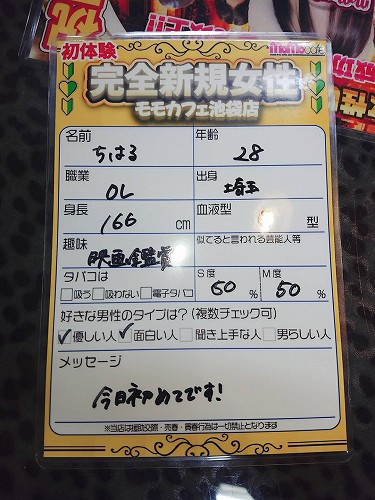 初体験
完全新規女性
モモカフェ池袋店
名前 年齢
ちはる 28
職業 出身
OL 埼玉
身長 血液型
166 cm 型
趣味 似てると言われる芸能人等
映画鑑賞
タバコは S度 M度
□吸う □吸わない □電子タバコ 50 % 50 %
好きな男性のタイプは？(複数チェック可)
☑優しい人 ☑面白い人 □聞き上手な人 □男らしい人
メッセージ
今日初めてです!
※当店は援助交際・売春・買春行為は一切禁止となります